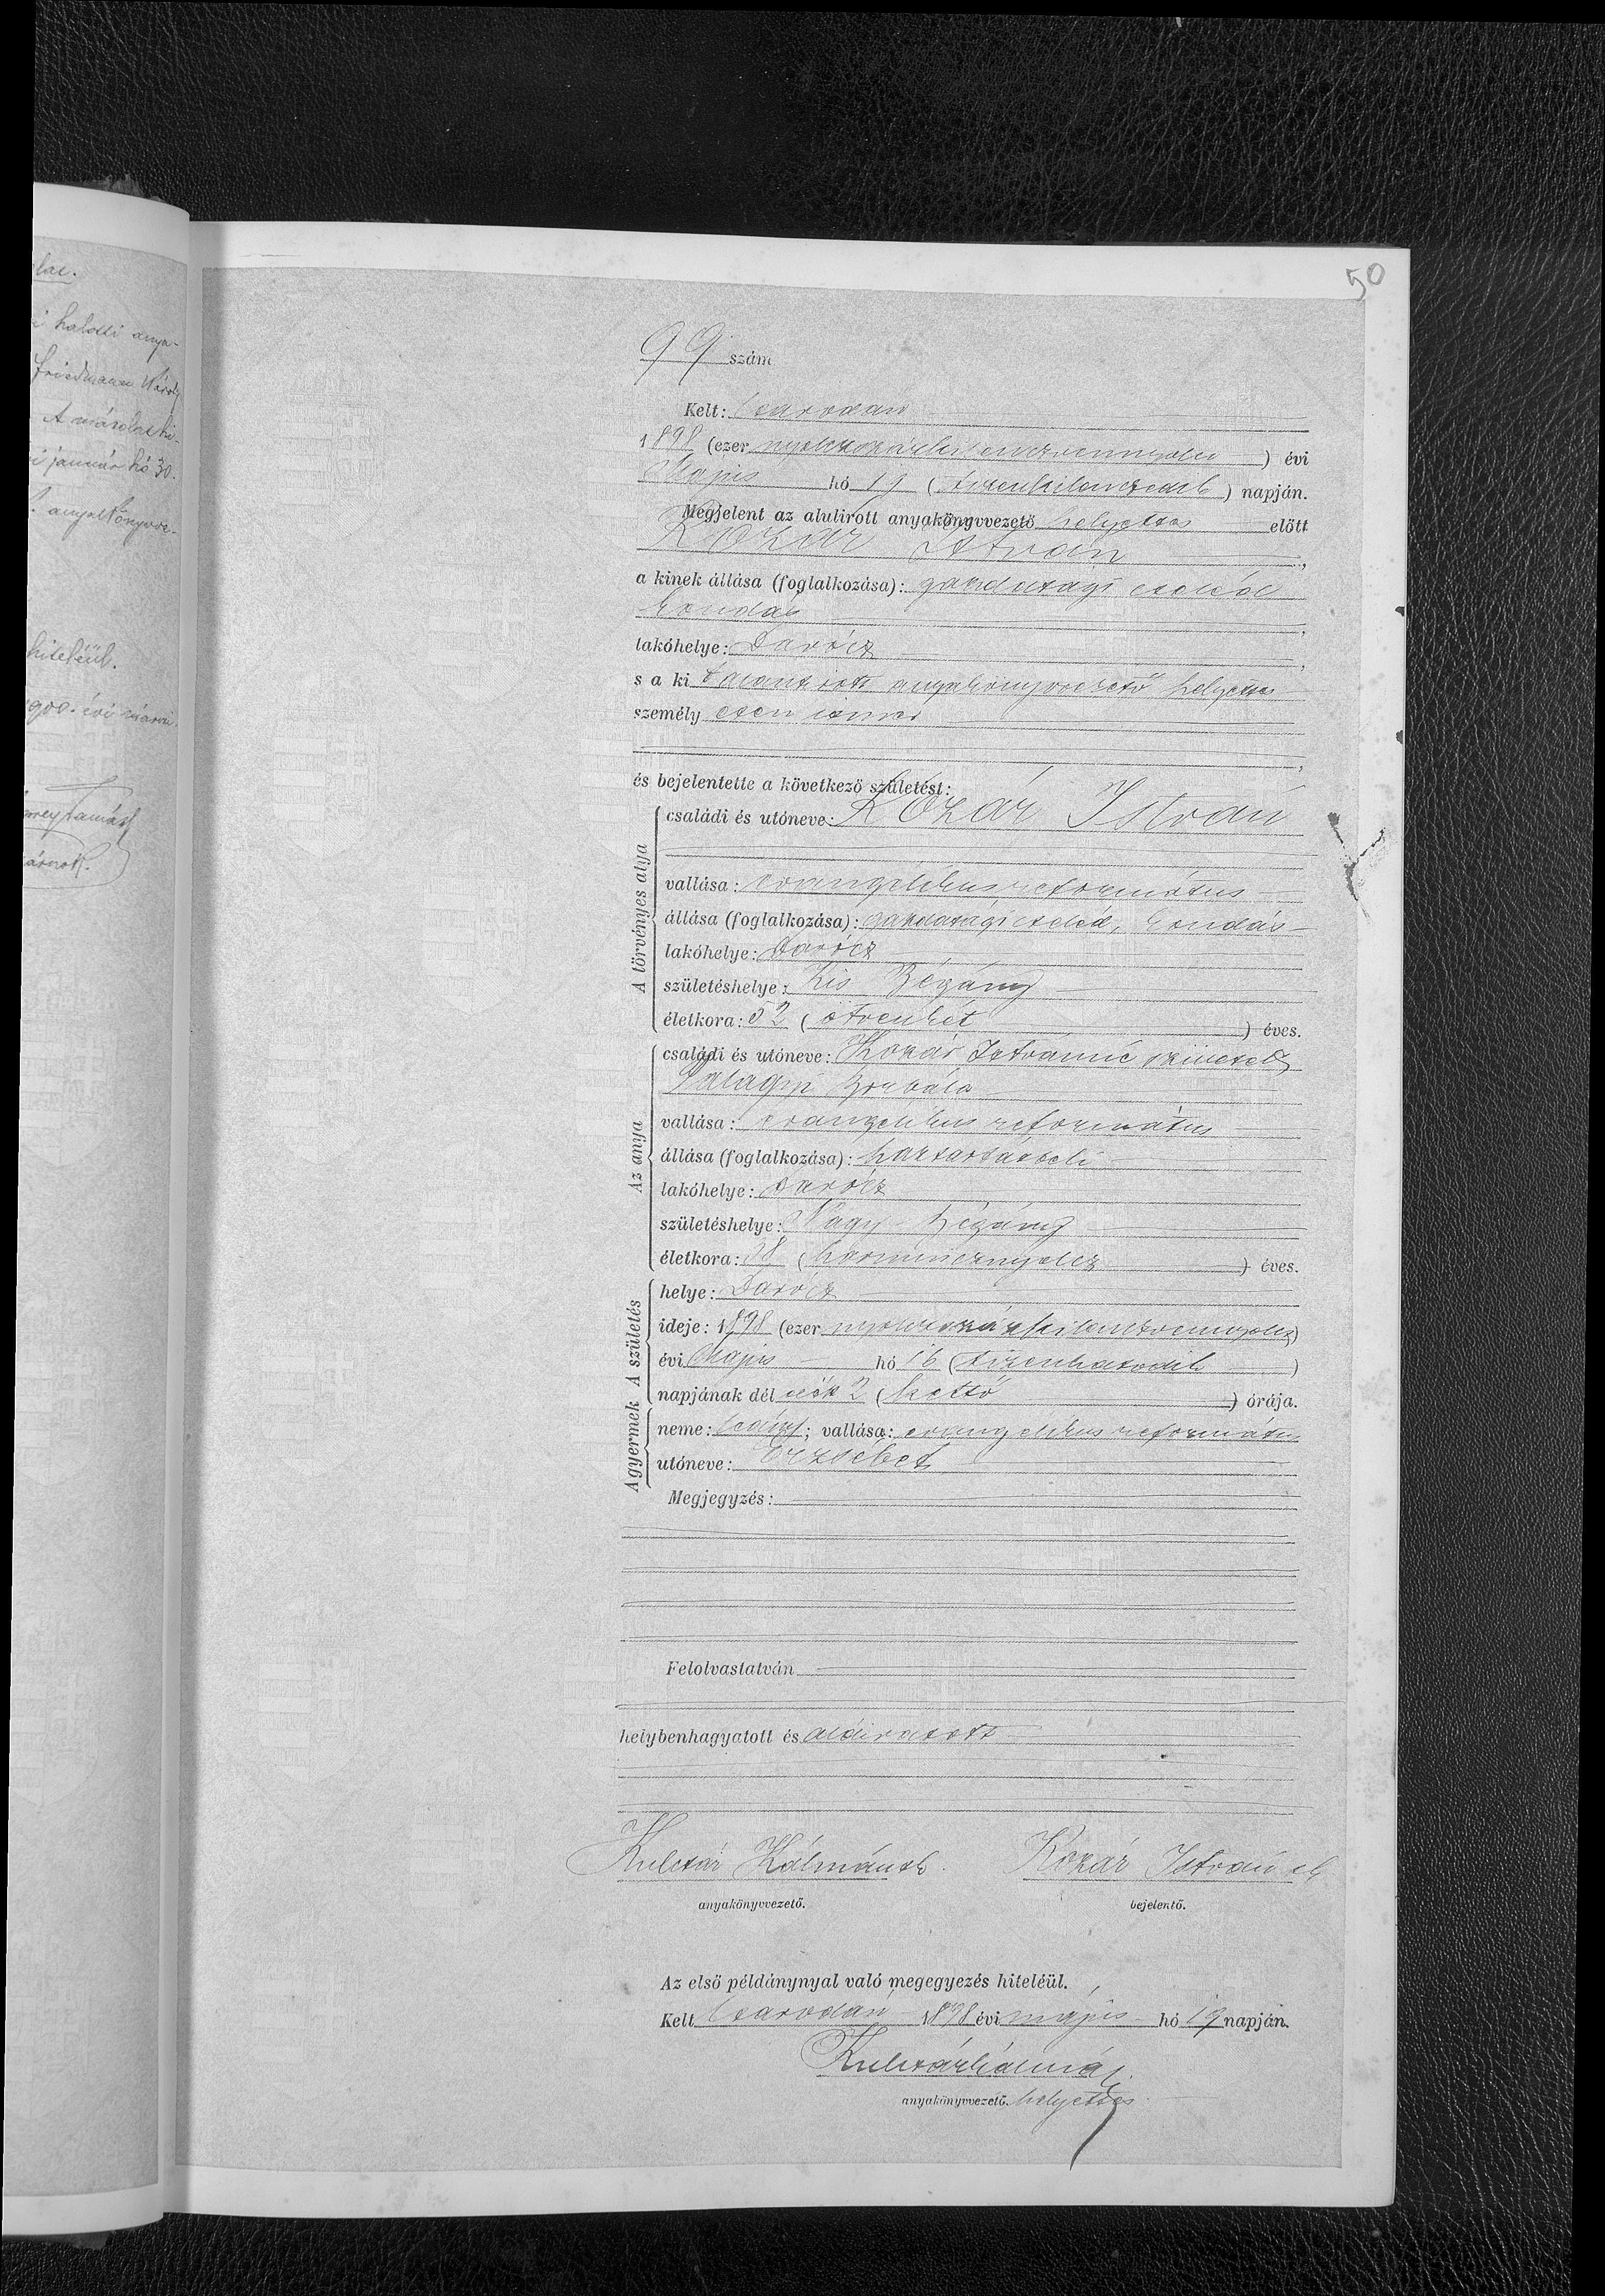 lat.
i halotti anya-
Friedmann Károly
A másolat hi-
i január hó 30.
anyakönyvve-
hiteléül.
900. évi
Tamás
50
99 szám
Kelt: Csarodán
1898 (ezer nyolczszázkilenczvennyolcz) évi
Május hó 19 (tizenkilenczedik) napján.
Megjelent az alulirott anyakönyvvezető helyettes előtt
Kozár István
a kinek állása (foglalkozása): gazdasági cseléd
kondás
lakóhelye: Darócz
s a ki alant irott anyakönyvvezető helyettes
személyesen ismer
és bejelentette a következő születést:
A törvényes atya
családi és utóneve: Kozár István
vallása: evangelikus református
állása (foglalkozása): gazdasági cseléd, kondás
lakóhelye: Darócz
születéshelye: Kis Bégány
életkora: 52 (ötvenkét) éves.
Az anya
családi és utóneve: Kozár Istvánné született
Borbála
vallása: evangelikus református
állása (foglalkozása): háztartásbeli
lakóhelye: Darócz
születéshelye: Nagy-Bégány
életkora: 38 (harmincznyolcz) éves.
A születés
helye: Darócz
ideje: 1898 (ezer nyolczszázkilenczvennyolcz)
évi Május hó 16 (tizenhatodik)
napjának dél előtt 2 (kettő) órája.
A gyermek
neme: leány; vallása: evangelikus református
utóneve: Erzsébet
Megjegyzés:
Felolvastatván
helybenhagyatott és aláiratott
Kulcsár Kálmán sk. Kozár István sk
anyakönyvvezető. bejelentő.
Az első példánynyal való megegyezés hiteléül.
Kelt Csarodán 1898 évi május hó 19 napján.
Kulcsár Kálmán
anyakönyvvezető. helyettes